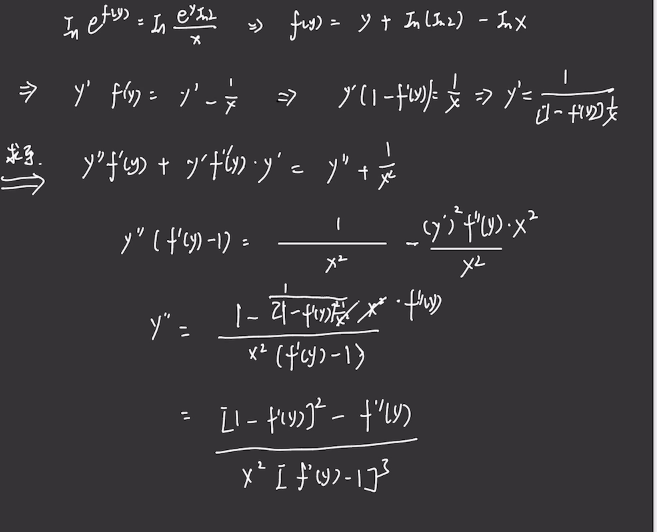 In e^{f(y)} = In \frac{e^y In2}{x} ⇒ f(y) = y + In(In2) - Inx
⇒ y' f'(y) = y' - \frac{1}{x} ⇒ y'(1-f'(y)) = \frac{1}{x} ⇒ y' = \frac{1}{[1-f'(y)]x}
求导. ⇒ y''f'(y) + y'f''(y)·y' = y'' + \frac{1}{x^2}
y''(f'(y)-1) = \frac{1}{x^2} - \frac{(y')^2 f''(y)·x^2}{x^2}
y'' = \frac{1 - \frac{1}{[1-f'(y)]^2 x^2} x^2 · f''(y)}{x^2(f'(y)-1)}
= \frac{[1-f'(y)]^2 - f''(y)}{x^2[f'(y)-1]^3}